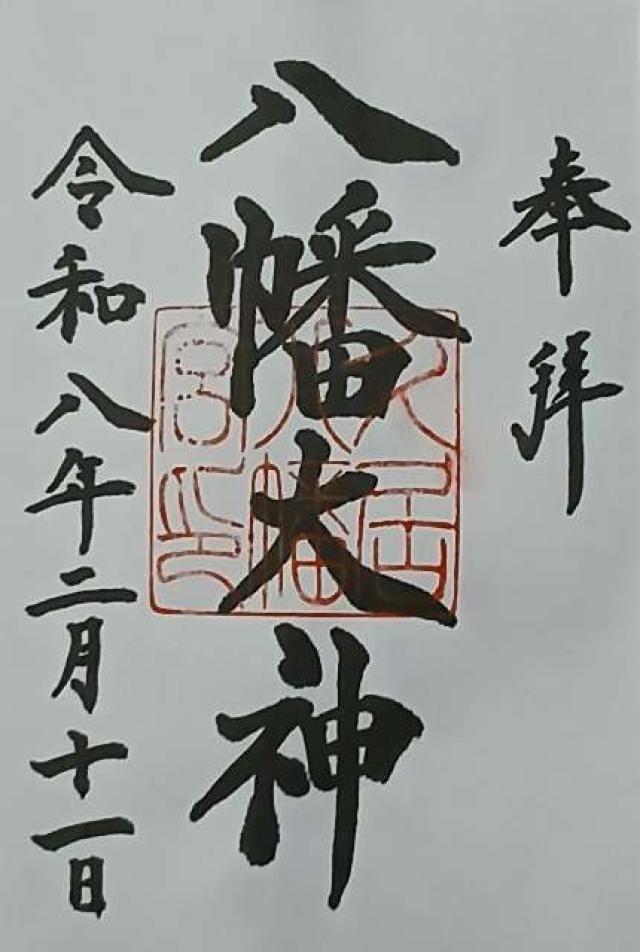 奉拝
八幡大神
令和八年二月十一日